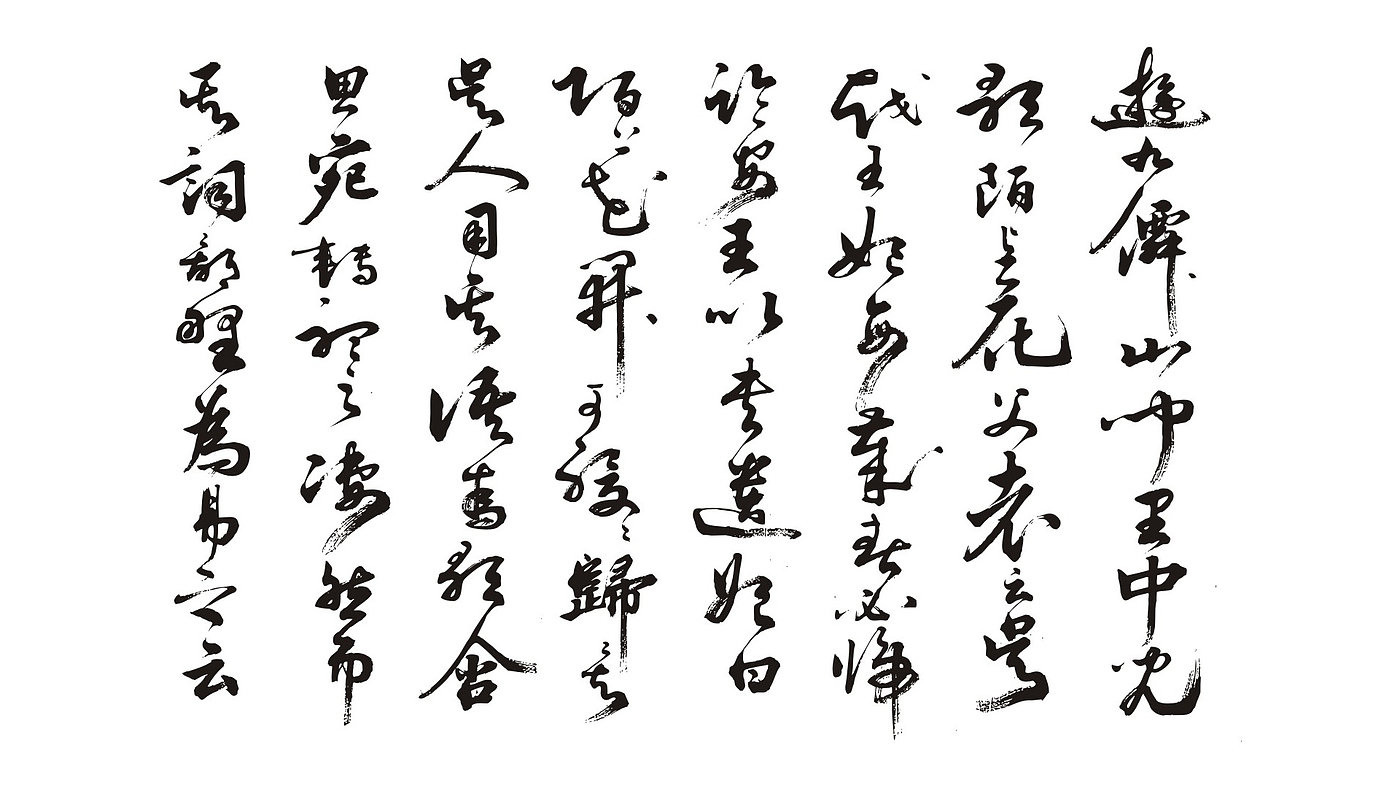 遊九僊山聞里中兒
歌陌上花父老云吳
越王妃每歲春必歸
臨安王以書遺妃曰
陌上花開可緩緩歸矣
吳人用其語為歌含
思宛轉聽之凄然而
其詞鄙野為易之云